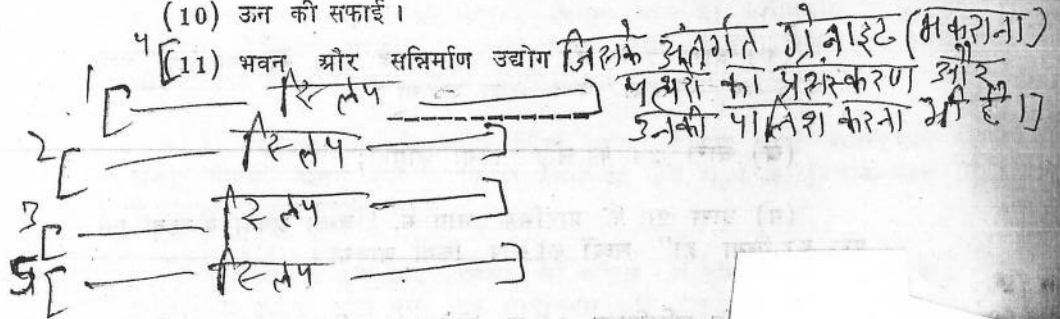 (10) ऊन की सफाई ।
4 [(11) भवन और सन्निर्माण उद्योग जिसके अंतर्गत ग्रेनाइट (मकराना)
पत्थरों का प्रसंस्करण और
उनकी पालिश करना भी है।]
1 [ स्लिप ]
2 [ स्लिप ]
3 [ स्लिप ]
5 [ स्लिप ]